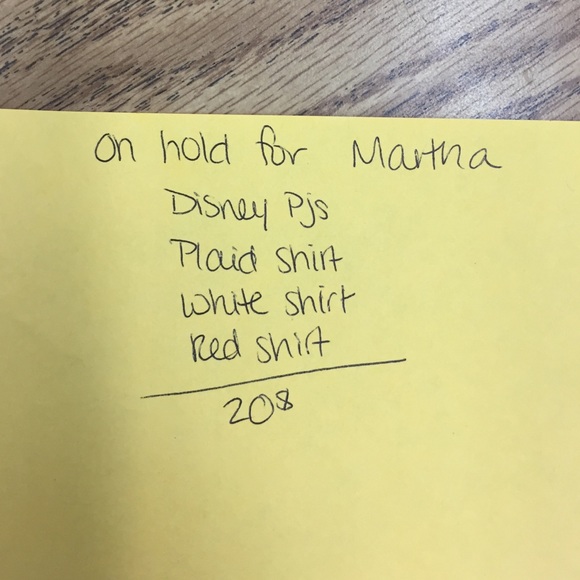 on hold for Martha
Disney Pjs
Plaid shirt
White shirt
Red shirt
20$